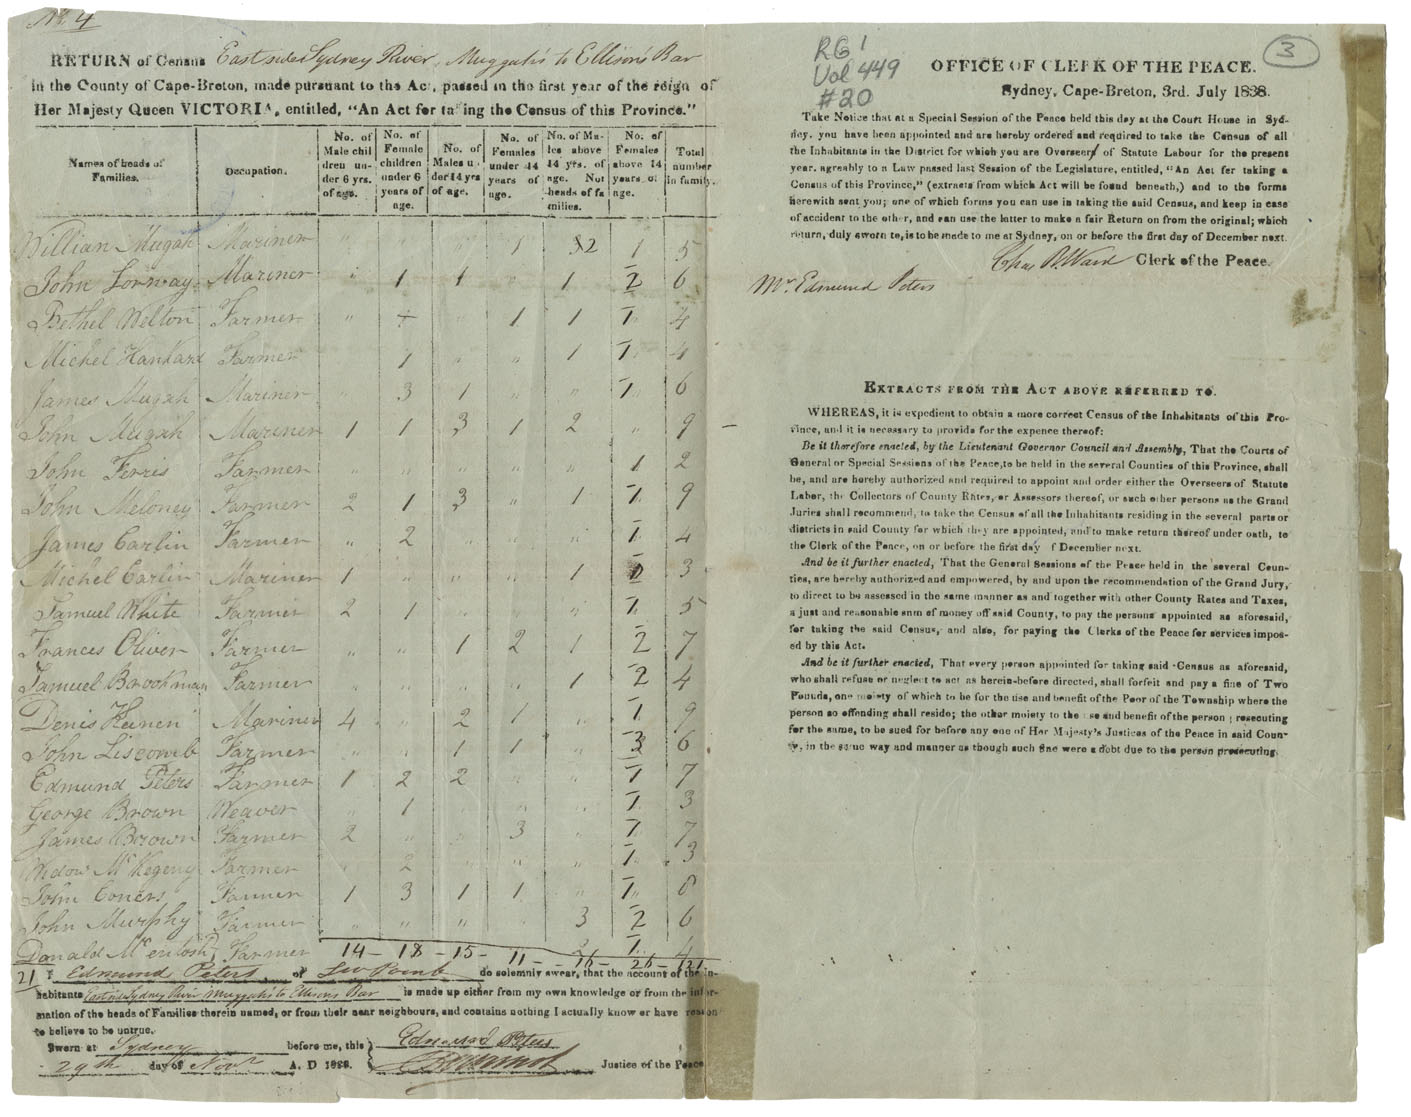 No. 4
RETURN of Census East side Sydney River, Muggah's to Ellison's Bar
in the County of Cape-Breton, made pursuant to the Act, passed in the first year of the reign of
Her Majesty Queen VICTORIA, entitled, "An Act for taking the Census of this Province."
Names of heads of Families. | Occupation. | No. of Male children under 6 yrs. of age. | No. of Female children under 6 years of age. | No. of Males under 14 yrs of age. | No. of Females under 14 years of age. | No. of Males above 14 yrs. of age. Not heads of families. | No. of Females above 14 years of age. | Total number in family.
Willian Mugah Mariner " " " 1 2 1 5
John Lorway Mariner " 1 1 " 1 2 6
Bethel Welton Farmer " + " 1 1 1 4
Michel Hankard Farmer 1 " " 1 1 4
James Mugah Mariner " 3 1 " " 1 6
John Mugah Mariner 1 1 3 1 2 " 9
John Ferris Farmer " " " " " 1 2
John Meloney Farmer 2 1 3 " 1 1 9
James Carlin Farmer " 2 " " " 1 4
Michel Carlin Mariner 1 " " " 1 3
Samuel White Farmer 2 1 " " " 1 5
Frances Oliver Farmer " " 1 2 1 2 7
Samuel Brookman Farmer " " " " 1 2 4
Denis Keinen Mariner 4 " 2 1 " 1 9
John Liscomb Farmer " " 1 1 " 3 6
Edmund Peters Farmer 1 2 2 " " 1 7
George Brown Weaver " 1 " " " 1 3
James Brown Farmer 2 " " 3 " 1 7
Widow McKegeny Farmer " 2 " " " 1 3
John Coners Farmer 1 3 1 1 " 1 8
John Murphy Farmer " " " " 3 2 6
Donald McEntosh Farmer 2 1 4
14 - 18 - 15 - 11 - 16 - 26 - 121
21 I Edmund Peters of Low Point do solemnly swear, that the account of the in-
habitants East side Sydney River Muggah's to Ellisons Bar is made up either from my own knowledge or from the infor-
mation of the heads of Families therein named, or from their near neighbours, and contains nothing I actually know or have reason
to believe to be untrue.
Sworn at Sydney before me, this } Edmund Peters
29th day of Novr A. D 1838. Justice of the Peace
RG 1
Vol 449
#20
3
OFFICE OF CLERK OF THE PEACE.
Sydney, Cape-Breton, 3rd. July 1838.
Take Notice that at a Special Session of the Peace held this day at the Court House in Syd-
ney. you have been appointed and are hereby ordered and required to take the Census of all
the Inhabitants in the District for which you are Overseer of Statute Labour for the present
year. agreably to a Law passed last Session of the Legislature, entitled, "An Act for taking a
Census of this Province," (extracts from which Act will be found beneath,) and to the forms
herewith sent you; one of which forms you can use in taking the said Census, and keep in case
of accident to the other, and can use the latter to make a fair Return on from the original; which
return, duly sworn to, is to be made to me at Sydney, on or before the first day of December next.
Chas R. Ward Clerk of the Peace.
Mr. Edmund Peters
EXTRACTS FROM THE ACT ABOVE REFERRED TO.
WHEREAS, it is expedient to obtain a more correct Census of the Inhabitants of this Pro-
vince, and it is necessary to provide for the expence thereof:
Be it therefore enacted, by the Lieutenant Governor Council and Assembly, That the Courts of
General or Special Sessions of the Peace, to be held in the several Counties of this Province, shall
be, and are hereby authorized and required to appoint and order either the Overseers of Statute
Labor, the Collectors of County Rates, or Assessors thereof, or such other persons as the Grand
Juries shall recommend, to take the Census of all the Inhabitants residing in the several parts or
districts in said County for which they are appointed, and to make return thereof under oath, to
the Clerk of the Peace, on or before the first day of December next.
And be it further enacted, That the General Sessions of the Peace held in the several Coun-
ties, are hereby authorized and empowered, by and upon the recommendation of the Grand Jury,
to direct to be assessed in the same manner as and together with other County Rates and Taxes,
a just and reasonable sum of money off said County, to pay the persons appointed as aforesaid,
for taking the said Census, and also, for paying the Clerks of the Peace for services impos-
ed by this Act.
And be it further enacted, That every person appointed for taking said Census as aforesaid,
who shall refuse or neglect to act as herein-before directed, shall forfeit and pay a fine of Two
Pounds, one moiety of which to be for the use and benefit of the Poor of the Township where the
person so offending shall reside; the other moiety to the use and benefit of the person prosecuting
for the same, to be sued for before any one of Her Majesty's Justices of the Peace in said Coun-
ty, in the same way and manner as though such fine were a debt due to the person prosecuting.